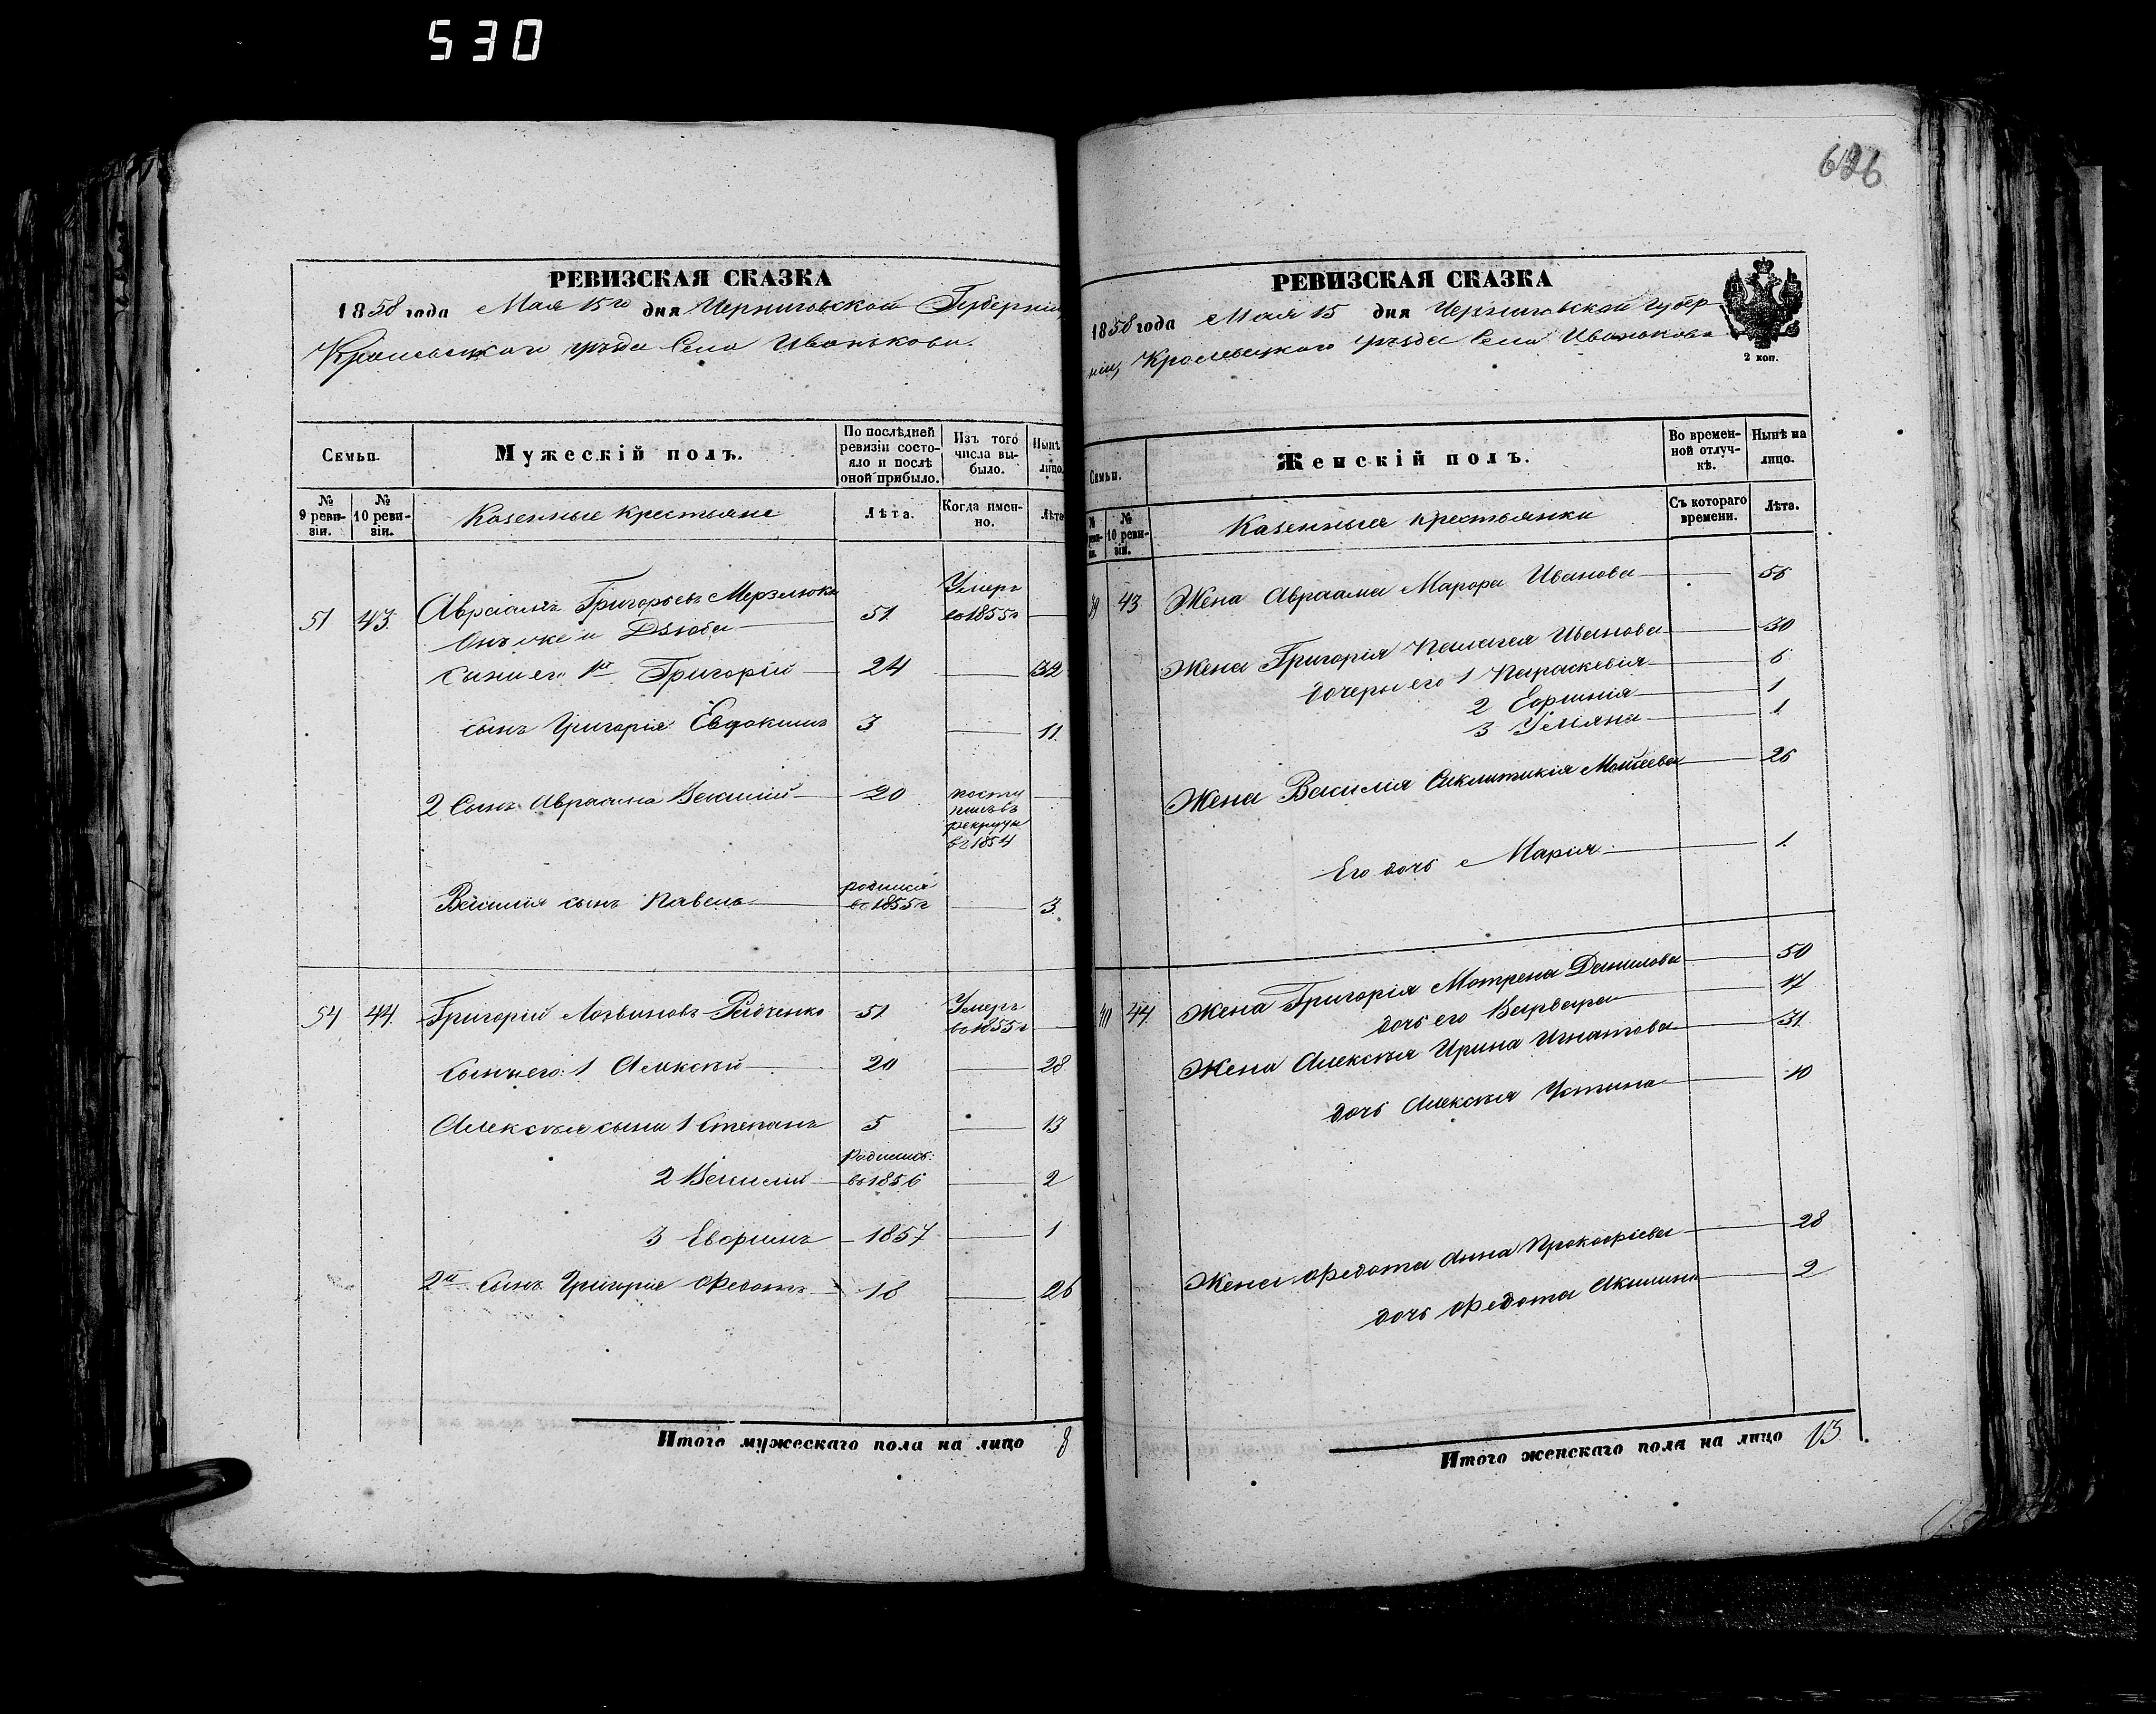 530
626
РЕВИЗСКАЯ СКАЗКА
1858 года Мая 15го дня Черниговской Губерніи,
Кролевецкого уезда Села Иванькова.
Семьи.
Мужескій полъ.
По послѣдней ревизіи состояло и послѣ оной прибыло.
Изъ того числа выбыло.
Нынѣ лицо.
№ 9 ревизіи.
№ 10 ревизіи.
Казенные крестьяне
Лѣта.
Когда именно.
Лѣта
51 43. Авраамъ Григорьевъ Мерзлюкъ 51. Умеръ въ 1855г
Онъ же и Дзюба
Сыни его 1й Григорій 24 32
сынъ Григорія Евдокимъ 3 11
2 Сынъ Авраама Василій 20 поступилъ въ рекруты въ 1854
Василія сынъ Павелъ родился въ 1855г 3.
54 44. Григорій Логвиновъ Радченко 51. Умеръ въ 1855г
Сыны его: 1 Алексѣй 20 28
Алексѣя сыни 1 Степанъ 5 13
2 Василій родился: въ 1856 2
3 1857 1
2й Сынъ Григорія Федотъ 18 26
Итого мужескаго пола на лицо 8
РЕВИЗСКАЯ СКАЗКА
1858 года Мая 15 дня Черниговской Губер-
ніи, Кролевецкого уѣзда Села Иванькова
2 коп.
Семьи.
Женскій полъ.
Во временной отлучкѣ.
Нынѣ на лицо.
№ 10 ревизіи.
Казенныя крестьянки
Съ котораго времени.
Лѣта.
43 Жена Авраама Марфа Иванова 56
Жена Григорія Пелагея Иванова 30
дочеры его 1 Параскевія 6
2 Ефимія 1
3 Уліяна 1
Жена Василія Синклитикія Моисеева 26
Его дочь Марія 1.
44 Жена Григорія Мотрена Данилова 50
дочь его Варвара 17
Жена Алексѣя Ирина Игнатова 31.
дочь Алексѣя Устина 10
Жена Федота Анна Прокофіева 28
дочь Федота Акилина 2
Итого женскаго пола на лицо 13.